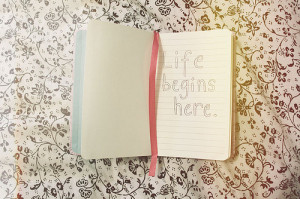 Life
begins
here.